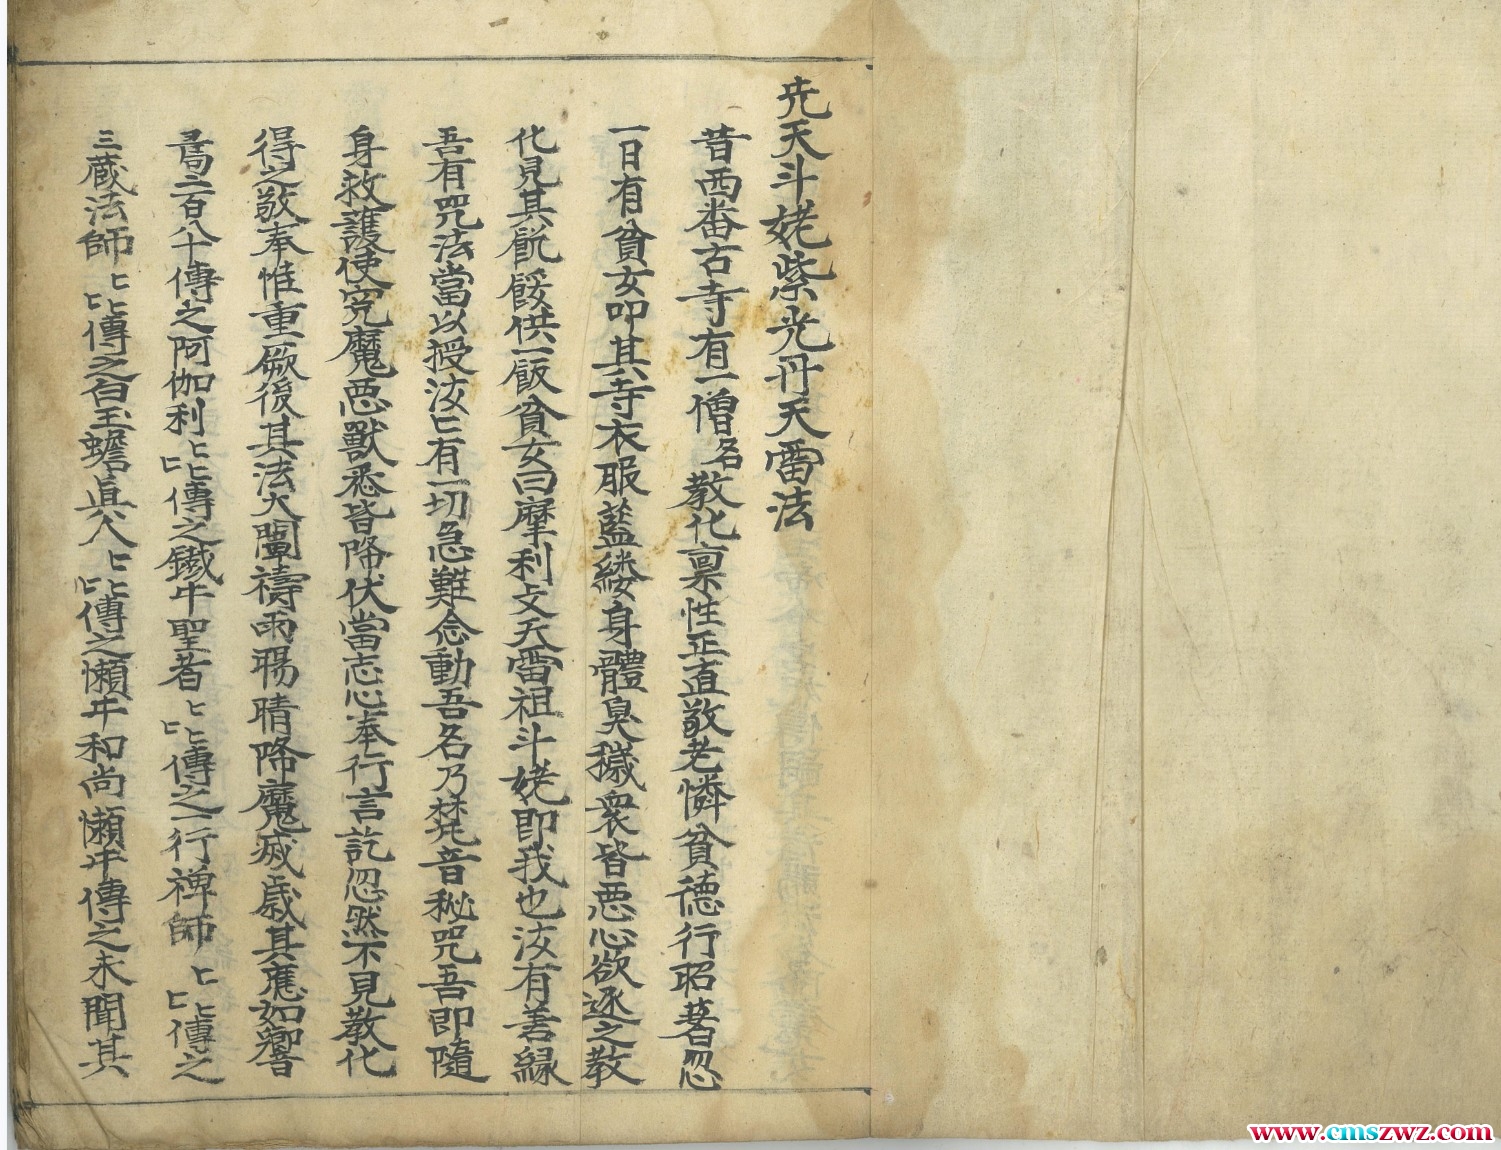 先天斗姥紫光丹天雷法
昔西番古寺有一僧名教化禀性正直敬老憐貧德行昭著忽
一日有貧女叩其寺衣服藍縷身體臭穢衆皆惡心欲逐之教
化見其飢餒供一飯貧女曰摩利攴天雷祖斗姥即我也汝有善緣
吾有咒法當以授汝匕有一切急難念動吾名乃梵音秘咒吾即隨
身救護使寃魔惡獸悉皆降伏當志心奉行言訖忽然不見教化
得之敬奉惟重厥後其法大闡禱雨暘晴降魔滅其應如響
二百八十傳之阿伽利匕匕匕傳之鐵牛聖者匕匕匕傳之一行禅師匕匕匕傳之
三藏法師匕匕匕傳之白玉蟾真人匕匕匕傳之懶牛和尚懶牛傳之未聞其
www.cmszwz.com